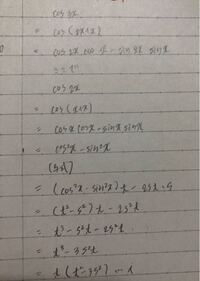 cos 3x
= cos(2x+x)
= cos 2x cos x - sin 2x sin x
cos 2x
= cos(x+x)
= cos x cos x - sin x sin x
= cos²x - sin²x
(与式)
= (cos²x - sin²x)t - 2st·s
= (t² - s²)t - 2s²t
= t³ - s²t - 2s²t
= t³ - 3s²t
= t(t² - 3s²)